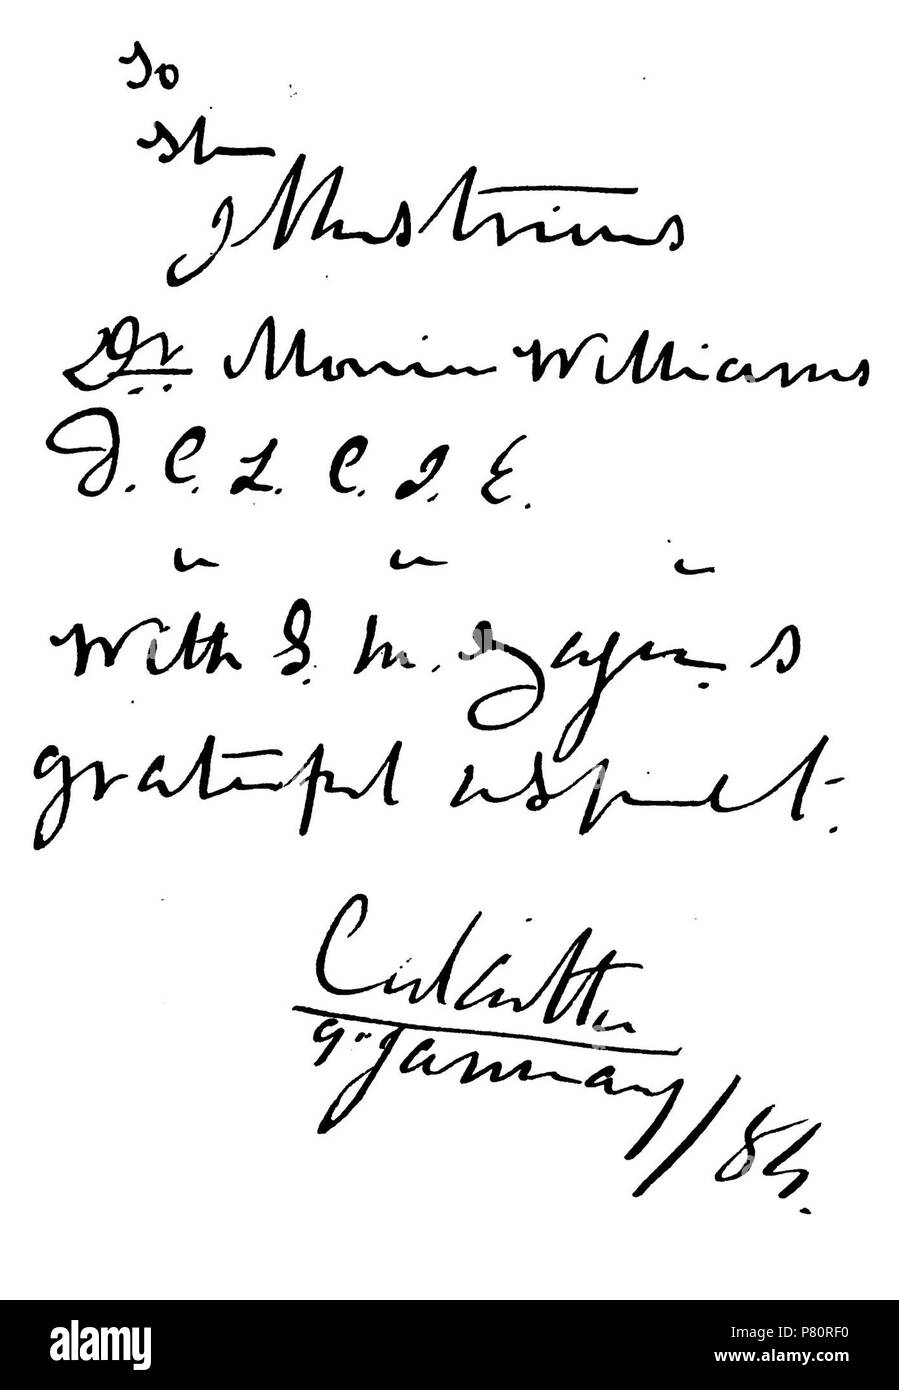 To
the
Illustrious
Dr. Monier Williams
D. C. L. C. I. E.
" " "
With S. M. Tagore's
grateful respect.
Calcutta
9. January/84.
alamy
Image ID: P80RF0
www.alamy.com